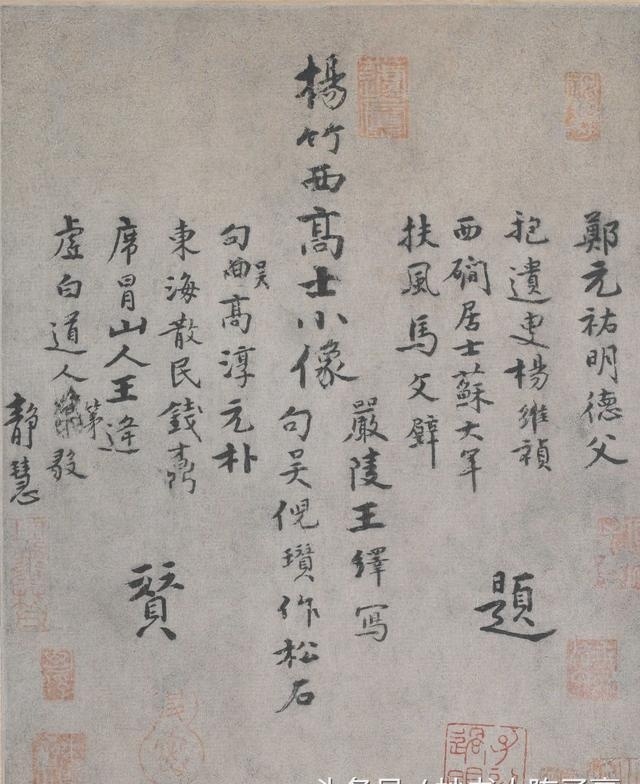 鄭元祐明德父
抱遺叟楊維禎
西礀居士蘇大年
扶風馬文璧
題
嚴陵王繹寫
楊竹西高士小像
句吳倪瓚作松石
句曲吳高淳元朴
東海散民錢鼒
席冒山人王逢
虛白道人
靜慧
贊